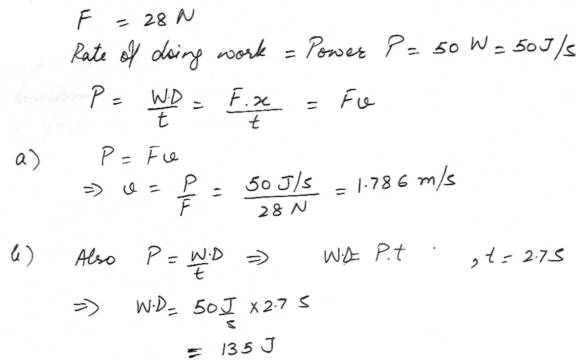 F = 28 N
Rate of doing work = Power P = 50 W = 50 J/s
P = W.D/t = F.x/t = Fv
a) P = Fv
⇒ v = P/F = 50 J/s / 28 N = 1.786 m/s
b) Also P = W.D/t ⇒ W.D = P.t , t = 2.7 s
⇒ W.D = 50 J/s × 2.7 s
= 135 J